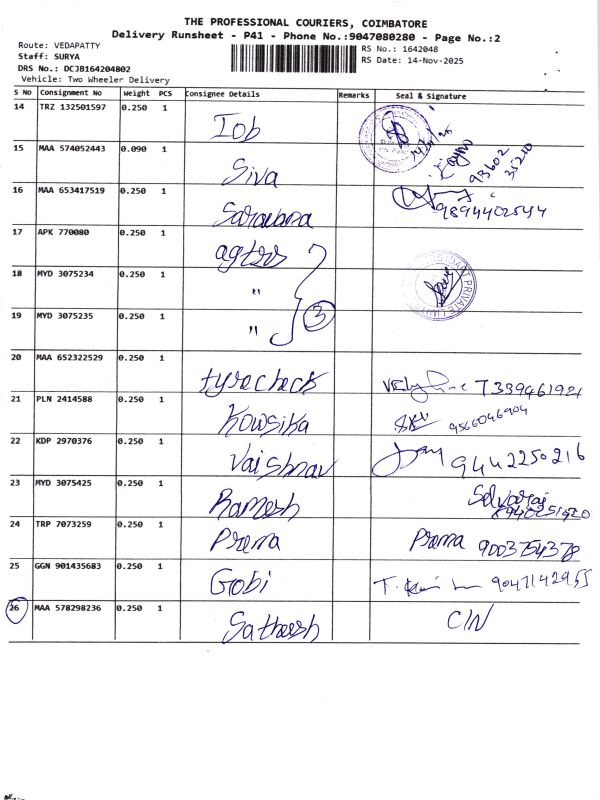 THE PROFESSIONAL COURIERS, COIMBATORE
Delivery Runsheet - P41 - Phone No.:9047080280 - Page No.:2
Route: VEDAPATTY
Staff: SURYA
DRS No.: DCJB164204802
Vehicle: Two Wheeler Delivery
RS No.: 1642048
RS Date: 14-Nov-2025
S No Consignment No Weight PCS Consignee Details Remarks Seal & Signature
14 TRZ 132501597 0.250 1 Iob
15 MAA 574052443 0.090 1 Siva 93602 35210
16 MAA 653417519 0.250 1 Saravana 9894402544
17 APK 770080 0.250 1 agtrs
18 MYD 3075234 0.250 1 " 3
19 MYD 3075235 0.250 1 "
20 MAA 652322529 0.250 1 tyrecheck 7339461921
21 PLN 2414588 0.250 1 Kowsika 9566046904
22 KDP 2970376 0.250 1 Vaishnav 9442250216
23 MYD 3075425 0.250 1 Ramesh Selvaraj 8940251920
24 TRP 7073259 0.250 1 Prema Prema 9003754378
25 GGN 901435683 0.250 1 Gobi 9047142955
26 MAA 578298236 0.250 1 Satheesh C/N